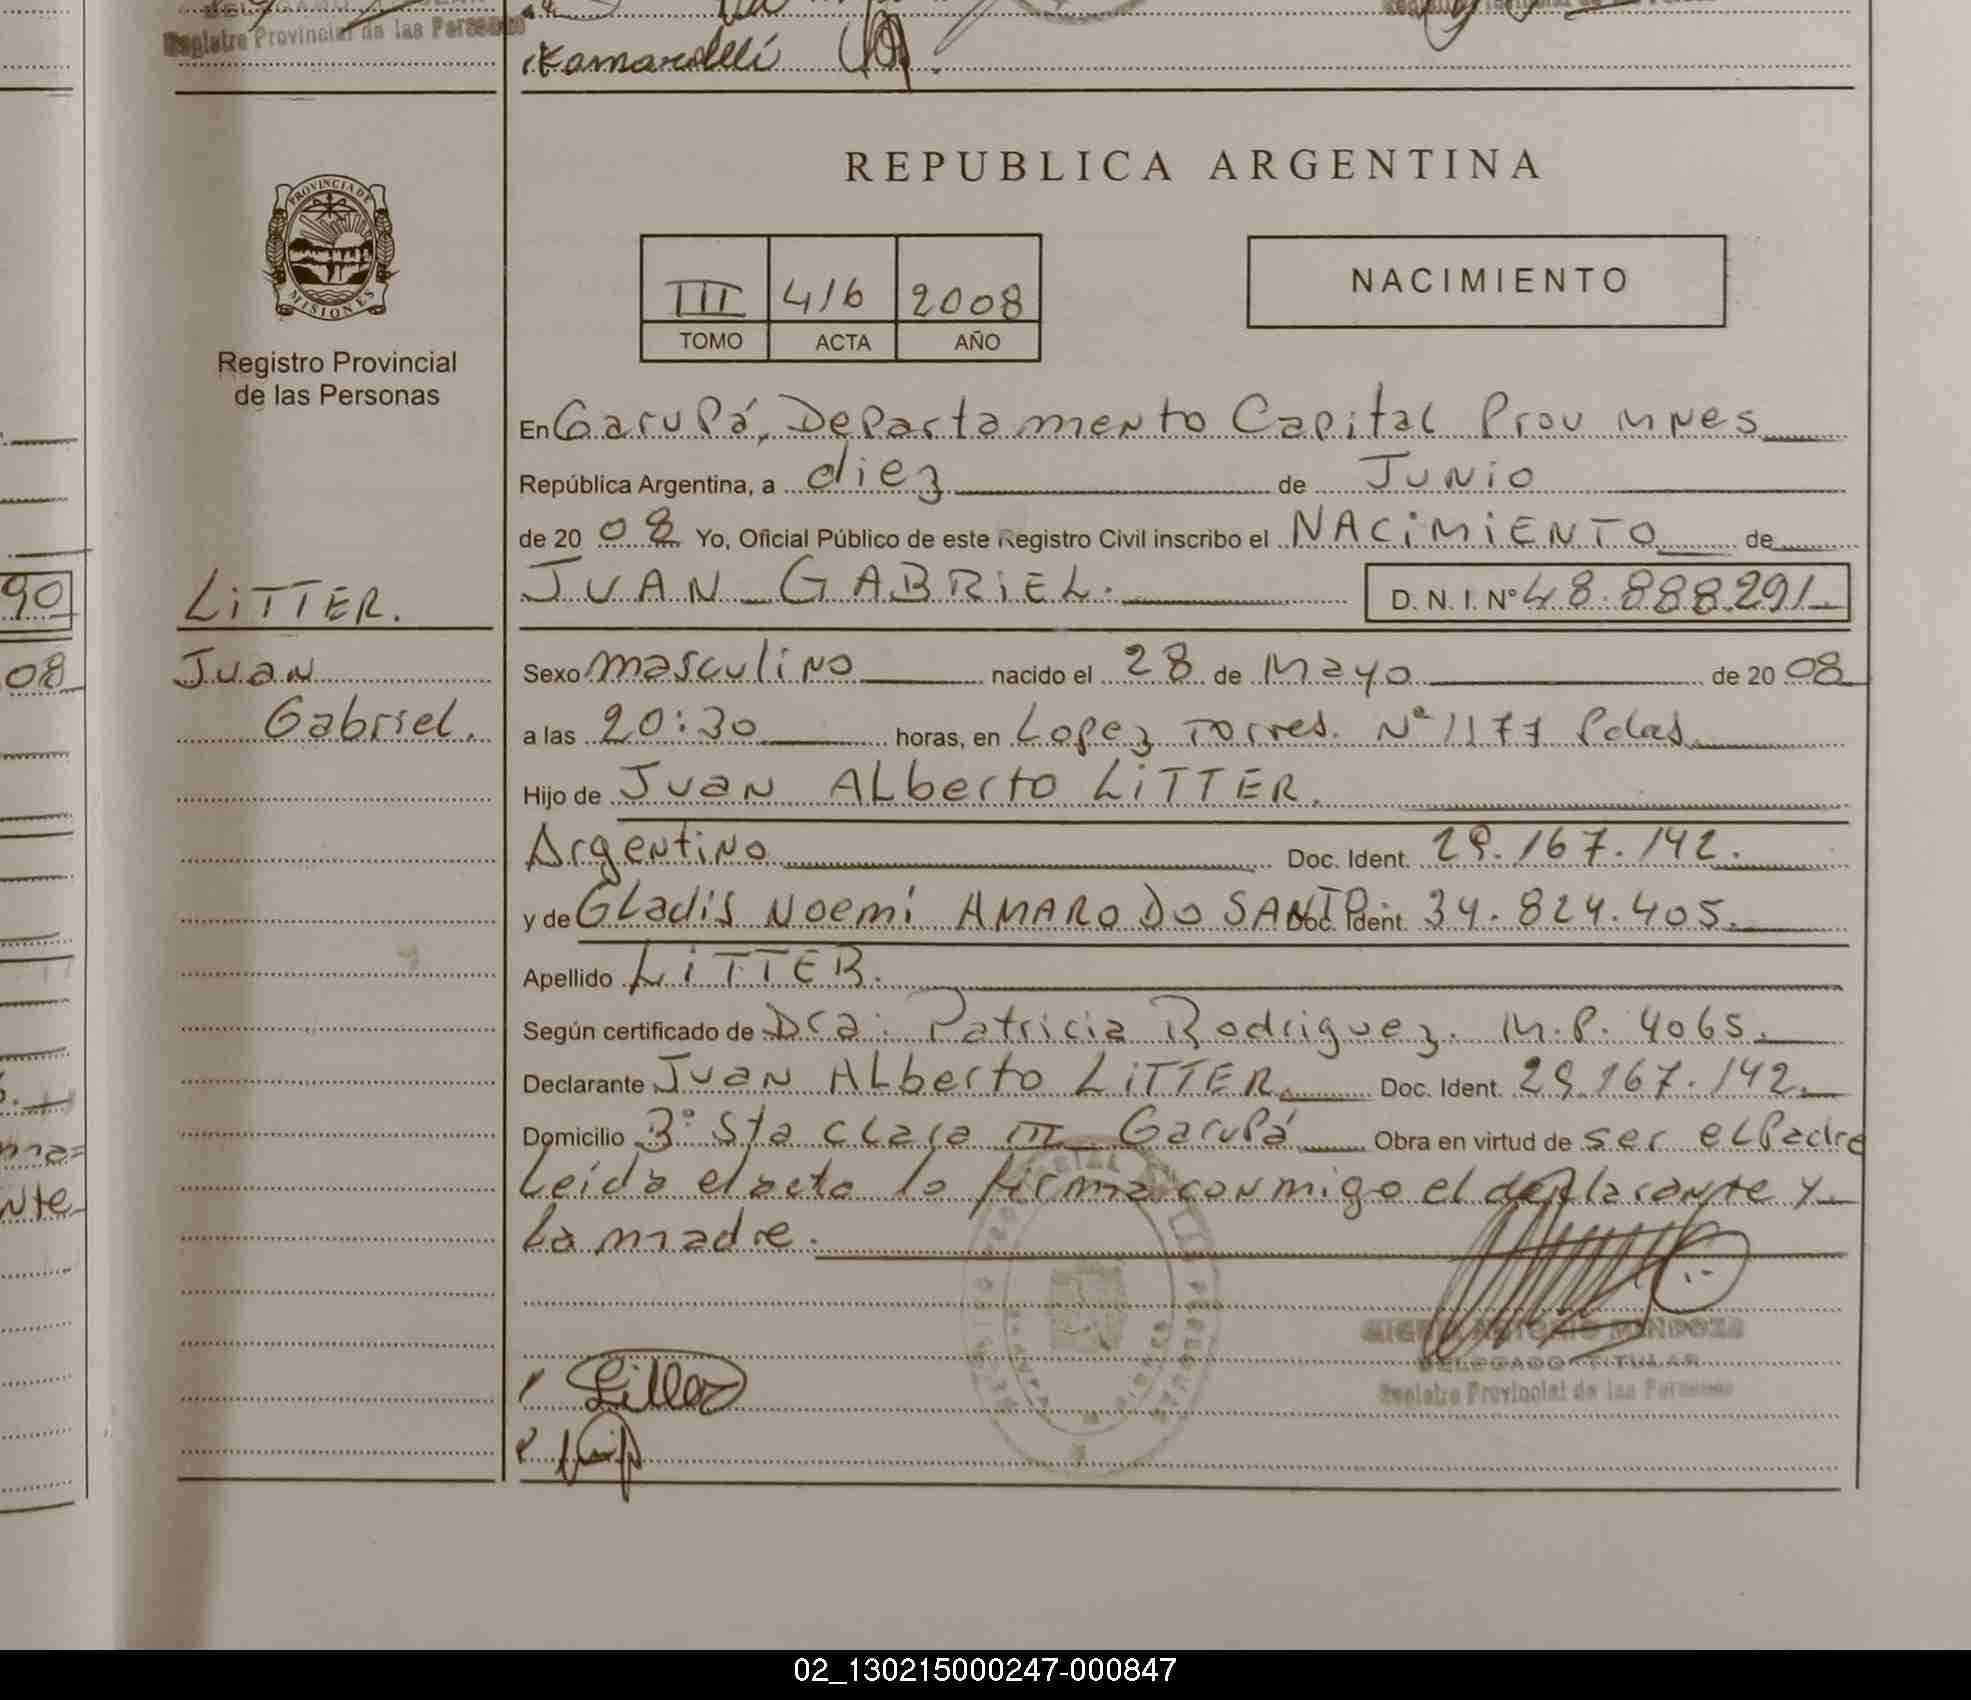 Registro Provincial de las Personas
Kamardelli
REPUBLICA ARGENTINA
PROVINCIA DE
MISIONES
Registro Provincial
de las Personas
III 416 2008
TOMO ACTA AÑO
NACIMIENTO
En Garupá, Departamento Capital Prov Mnes
República Argentina, a diez de Junio
de 20 08 Yo, Oficial Público de este Registro Civil inscribo el NACIMIENTO de
JUAN GABRIEL. D. N. I. N° 48.888.291
LITTER.
Juan
Gabriel.
Sexo masculino nacido el 28 de Mayo de 20 08
a las 20:30 horas, en Lopez Torres. N° 1177 Pdas
Hijo de Juan ALberto LITTER.
Argentino Doc. Ident. 29.167.142.
y de GLadis Noemí AMARO DO SANTO Doc. Ident. 34.824.405.
Apellido LITTER.
Según certificado de Dra. Patricia Rodriguez. M.P. 4065.
Declarante Juan ALberto LITTER. Doc. Ident. 29.167.142.
Domicilio B° Sta Clara III Garupá Obra en virtud de ser el Padre
Leída el acta la firma conmigo el declarante y
La madre.
ANTONIO MENDOZA
DELEGADO TITULAR
Registro Provincial de las Personas
90
08
nte
02_130215000247-000847